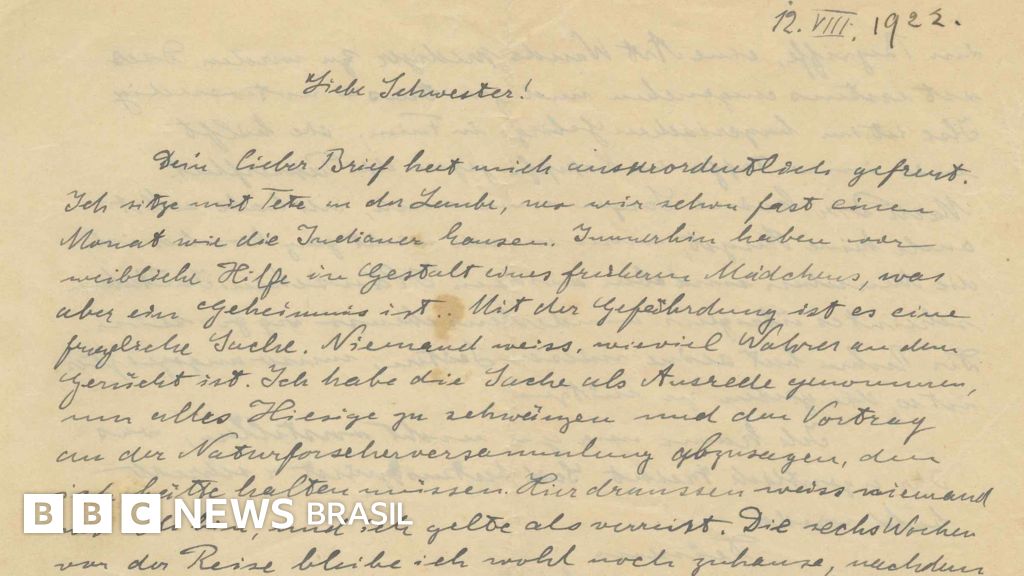 12. VIII. 1922.
Liebe Schwester!
Dein lieber Brief hat mich ausserordentlich gefreut.
Ich sitze mit Tete in der Laube, wo wir schon fast einen
Monat wie die Indianer hausen. Immerhin haben wir
weibliche Hilfe in Gestalt eines früheren Mädchens, was
aber ein Geheimnis ist.. Mit der Gefährdung ist es eine
fragliche Sache. Niemand weiss, wieviel Wahres an dem
Gerücht ist. Ich habe die Sache als Ausrede genommen,
um alles Hiesige zu schwänzen und den Vortrag
an der Naturforscherversammlung abzusagen, den
ich hätte halten müssen. Hier draussen weiss niemand
und ich gelte als verreist. Die sechs Wochen
BBC NEWS BRASIL
vor der Reise bleibe ich wohl noch zuhause, nachdem